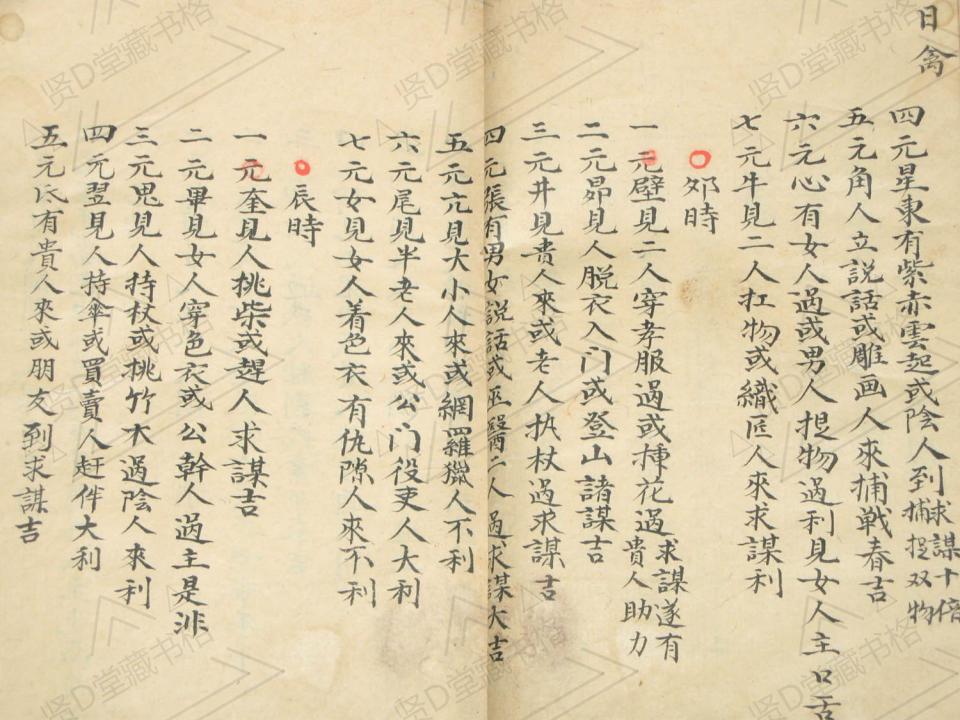 日禽
四元星東有紫赤雲起或陰人到求謀十倍捕捉双物
五元角人立説話或雕画人來捕戦春吉
六元心有女人過或男人提物過利見女人主口舌
七元牛見二人扛物或織匠人來求謀利
夘時
一元壁見二人穿孝服過或挿花過求謀遂有貴人助力
二元昴見人脱衣入门或登山諸謀吉
三元井見貴人來或老人执杖過求謀吉
四元張有男女説話或巫醫二人過求謀大吉
五元亢見大小人來或網羅獵人不利
六元尾見半老人來或公门役吏人大利
七元女見女人着色衣有仇隙人來不利
辰時
一元奎見人挑柴或趕人求謀吉
二元畢見女人穿色衣或公幹人過主是非
三元鬼見人持杖或挑竹木過陰人來利
四元翌見人持傘或買賣人赶件大利
五元氐有貴人來或朋友到求謀吉
贤D堂藏书格